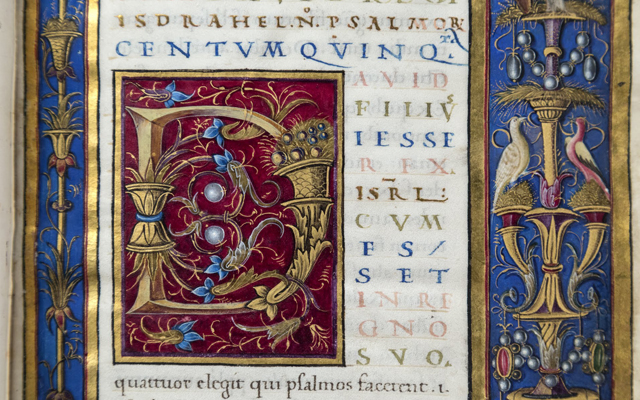 ISDRAHEL.N.PSALMOR
CENTVM QVINQ.TA
DAVID
FILIVS
IESSE
REX.
ISRL̄:
CVM
ES/
SET
IN RE
GNO
SVO.
quattuor elegit qui psalmos facerent. i.